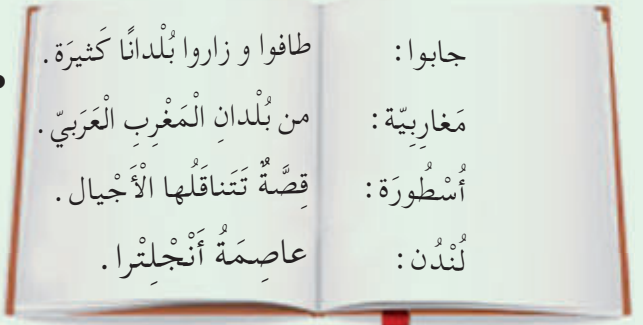 جابوا : طافوا و زاروا بُلْدانًا كَثيرَة .
مَغارِبِيّة : من بُلْدانِ الْمَغْرِبِ الْعَرَبيّ .
أُسْطُورَة : قِصَّةٌ تَتَناقَلُها الْأَجْيال .
لُنْدُن : عاصِمَةُ أَنْجْلِتْرا .